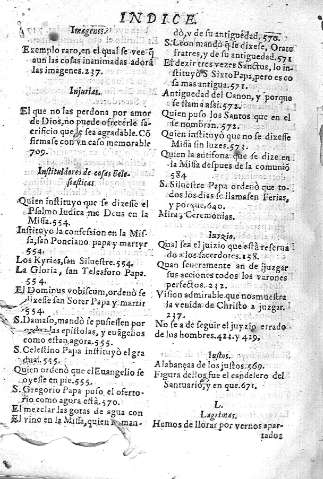 INDICE.
Imagenes.
Exemplo raro, en el qual se vee q̃
aun las cosas inanimadas adorã
las imagenes. 237.
Injurias.
El que no las perdona por amor
de Dios, no puede ofrecerle sa-
crificio que sea agradable. Cõ
firmase con vn caso memorable
709.
Instituidores de cosas Ecle-
siasticas
Quien instituyo que se dixesse el
Psalmo Iudica me Deus en la
Missa. 554.
Instituyo la confession en la Mis-
sa, san Ponciano papa y martyr
554.
Los Kyries, san Siluestre. 554.
La Gloria, san Telesforo Papa.
554.
El Dominus vobiscum, ordenò se
dixesse san Soter Papa y martyr
554.
S. Damaso, mandò se pusiessen por
las epistolas, y euãgelios
como estan agora. 555.
S. Celestino Papa instituyò el gra
dual. 555.
Quien ordenò que el Euangelio se
oyesse en pie. 555.
S. Gregorio Papa puso el oferto-
rio como agora està. 570.
El mezclar las gotas de agua con
el vino en la Missa, quien lo man-
dò, y de su antiguedad. 570.
S. Leon mandò q̃ se dixesse, Orate
fratres, y de su antiguedad. 571
El dezir tres vezes Sanctus, lo in-
stituyò S. Sixto Papa, pero es co
sa mas antigua. 572.
Antiguedad del Canon, y porque
se llamò assi. 572.
Quien puso los Santos que en el
se nombran. 572.
Quien instituyò que no se dixesse
Missa sin luzes. 573.
Quien la antifona que se dize en
la Missa despues de la comuniõ
584
S. Siluestre Papa ordenò que to-
dos los dias se llamassen Ferias,
y porque. 640.
Mira, Ceremonias.
Iuyzio.
Qual sea el juizio que està reserua
do a los sacerdotes. 158.
Quan seueramente an de juzgar
sus acciones todos los varones
perfectos. 232.
Vision admirable que nos muestra
la venida de Christo a juzgar.
237.
No se a de seguir el juyzio errado
de los hombres. 424. y 429.
Iustos.
Alabanças de los justos. 569.
Figura de los fue el candelero del
Santuario, y en que. 671.
L.
Lagrimas.
Hemos de llorar por vernos apar-
tados